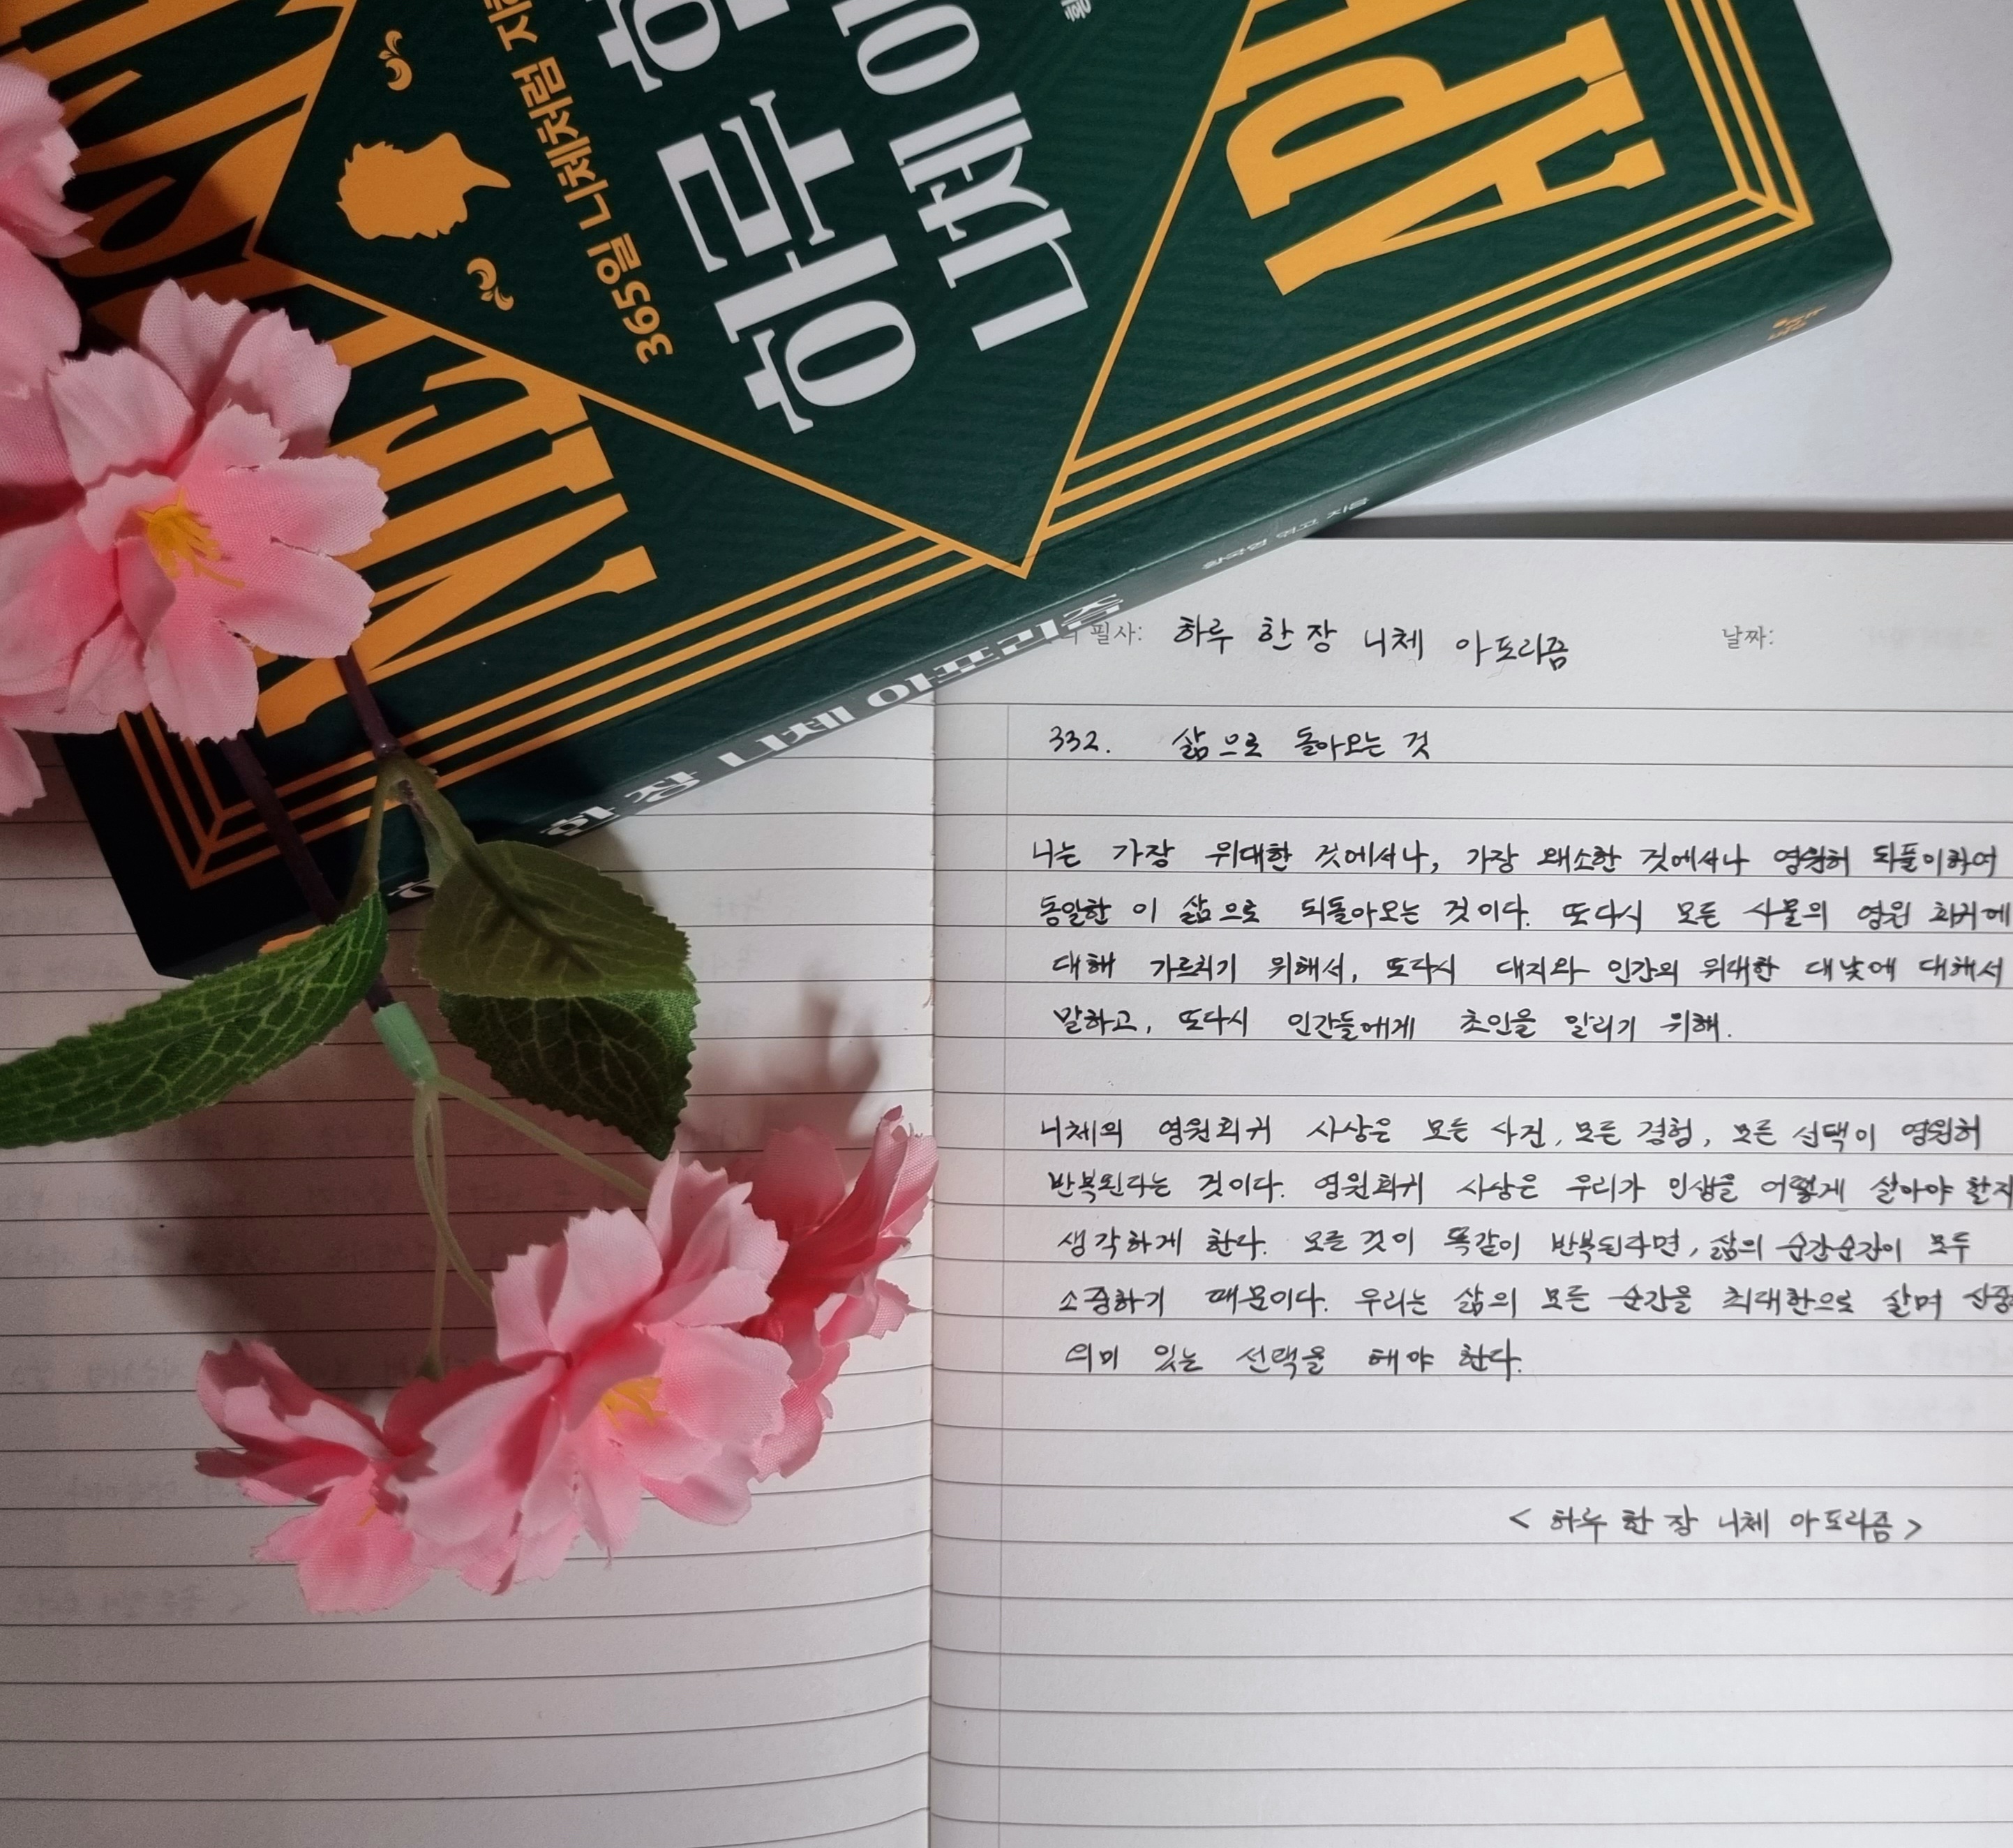 365일 니체처럼
하루
니체
한 장 니체 아포리즘
필사: 하루 한 장 니체 아포리즘 날짜:
332. 삶으로 돌아오는 것
나는 가장 위대한 것에서나, 가장 왜소한 것에서나 영원히 되풀이하여
동일한 이 삶으로 되돌아오는 것이다. 또다시 모든 사물의 영원 회귀에
대해 가르치기 위해서, 또다시 대지와 인간의 위대한 대낮에 대해서
말하고, 또다시 인간들에게 초인을 알리기 위해.
니체의 영원회귀 사상은 모든 사건, 모든 경험, 모든 선택이 영원히
반복된다는 것이다. 영원회귀 사상은 우리가 인생을 어떻게 살아야 할지
생각하게 한다. 모든 것이 똑같이 반복된다면, 삶의 순간순간이 모두
소중하기 때문이다. 우리는 삶의 모든 순간을 최대한으로 살며
의미 있는 선택을 해야 한다.
< 하루 한 장 니체 아포리즘 >